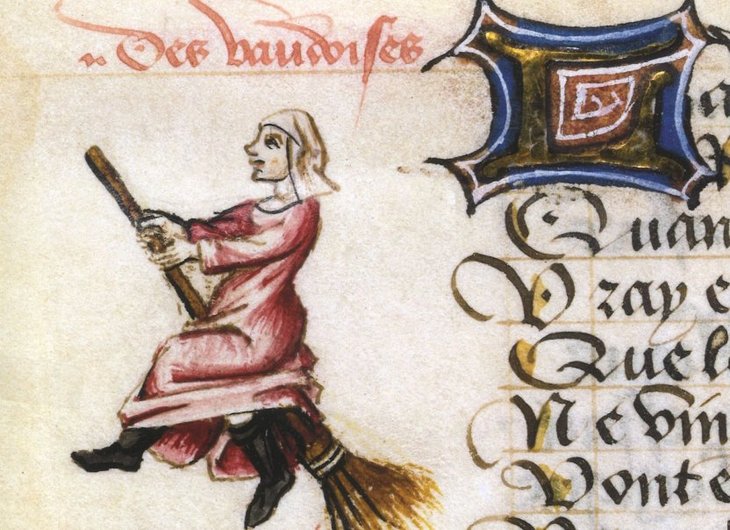 Des vaudoises
Quan
Vray e
Que l
Ne vin
Vont e